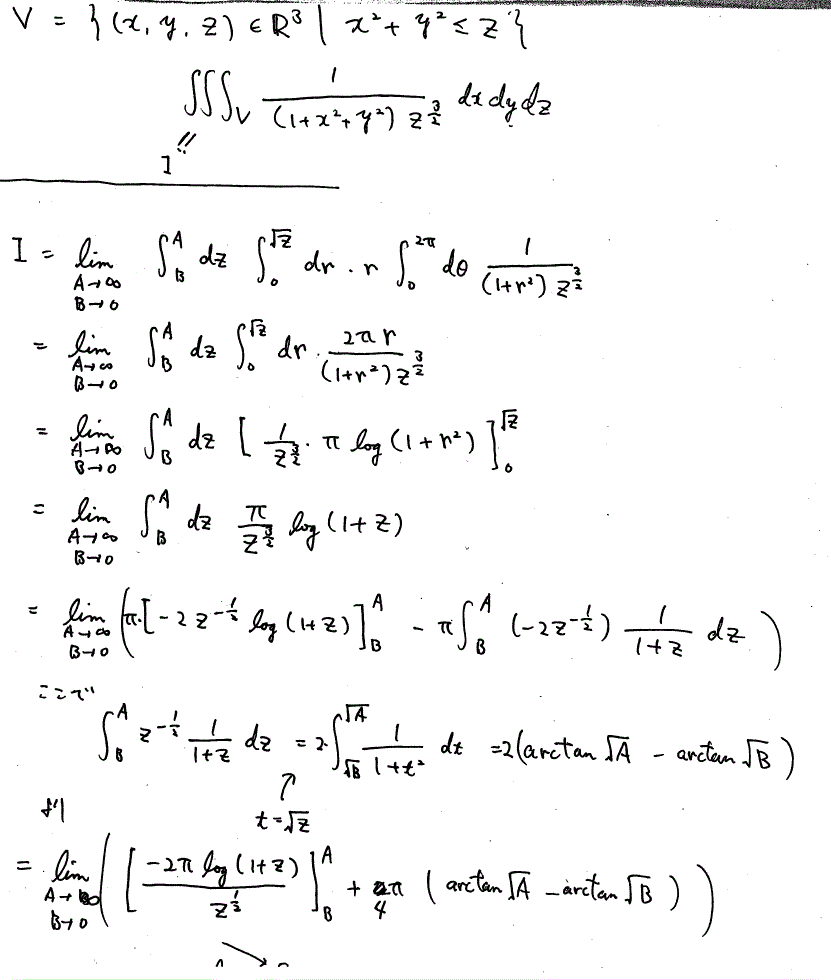 V = { (x, y, z) ∈ R³ | x² + y² ≤ z }
∭_V 1/((1+x²+y²) z^{3/2}) dxdydz
I
I = lim_{A→∞, B→0} ∫_B^A dz ∫_0^{√z} dr · r ∫_0^{2π} dθ 1/((1+r²) z^{3/2})
= lim_{A→∞, B→0} ∫_B^A dz ∫_0^{√z} dr · 2πr/((1+r²) z^{3/2})
= lim_{A→∞, B→0} ∫_B^A dz [ 1/z^{3/2} · π log(1+r²) ]_0^{√z}
= lim_{A→∞, B→0} ∫_B^A dz π/z^{3/2} log(1+z)
= lim_{A→∞, B→0} ( π·[ -2z^{-1/2} log(1+z) ]_B^A - π∫_B^A (-2z^{-1/2}) 1/(1+z) dz )
ここで
∫_B^A z^{-1/2} 1/(1+z) dz = 2∫_{√B}^{√A} 1/(1+t²) dt = 2(arctan √A - arctan √B)
t=√z
より
= lim_{A→∞, B→0} ( [ -2π log(1+z) / z^{1/2} ]_B^A + 4π ( arctan √A - arctan √B ) )